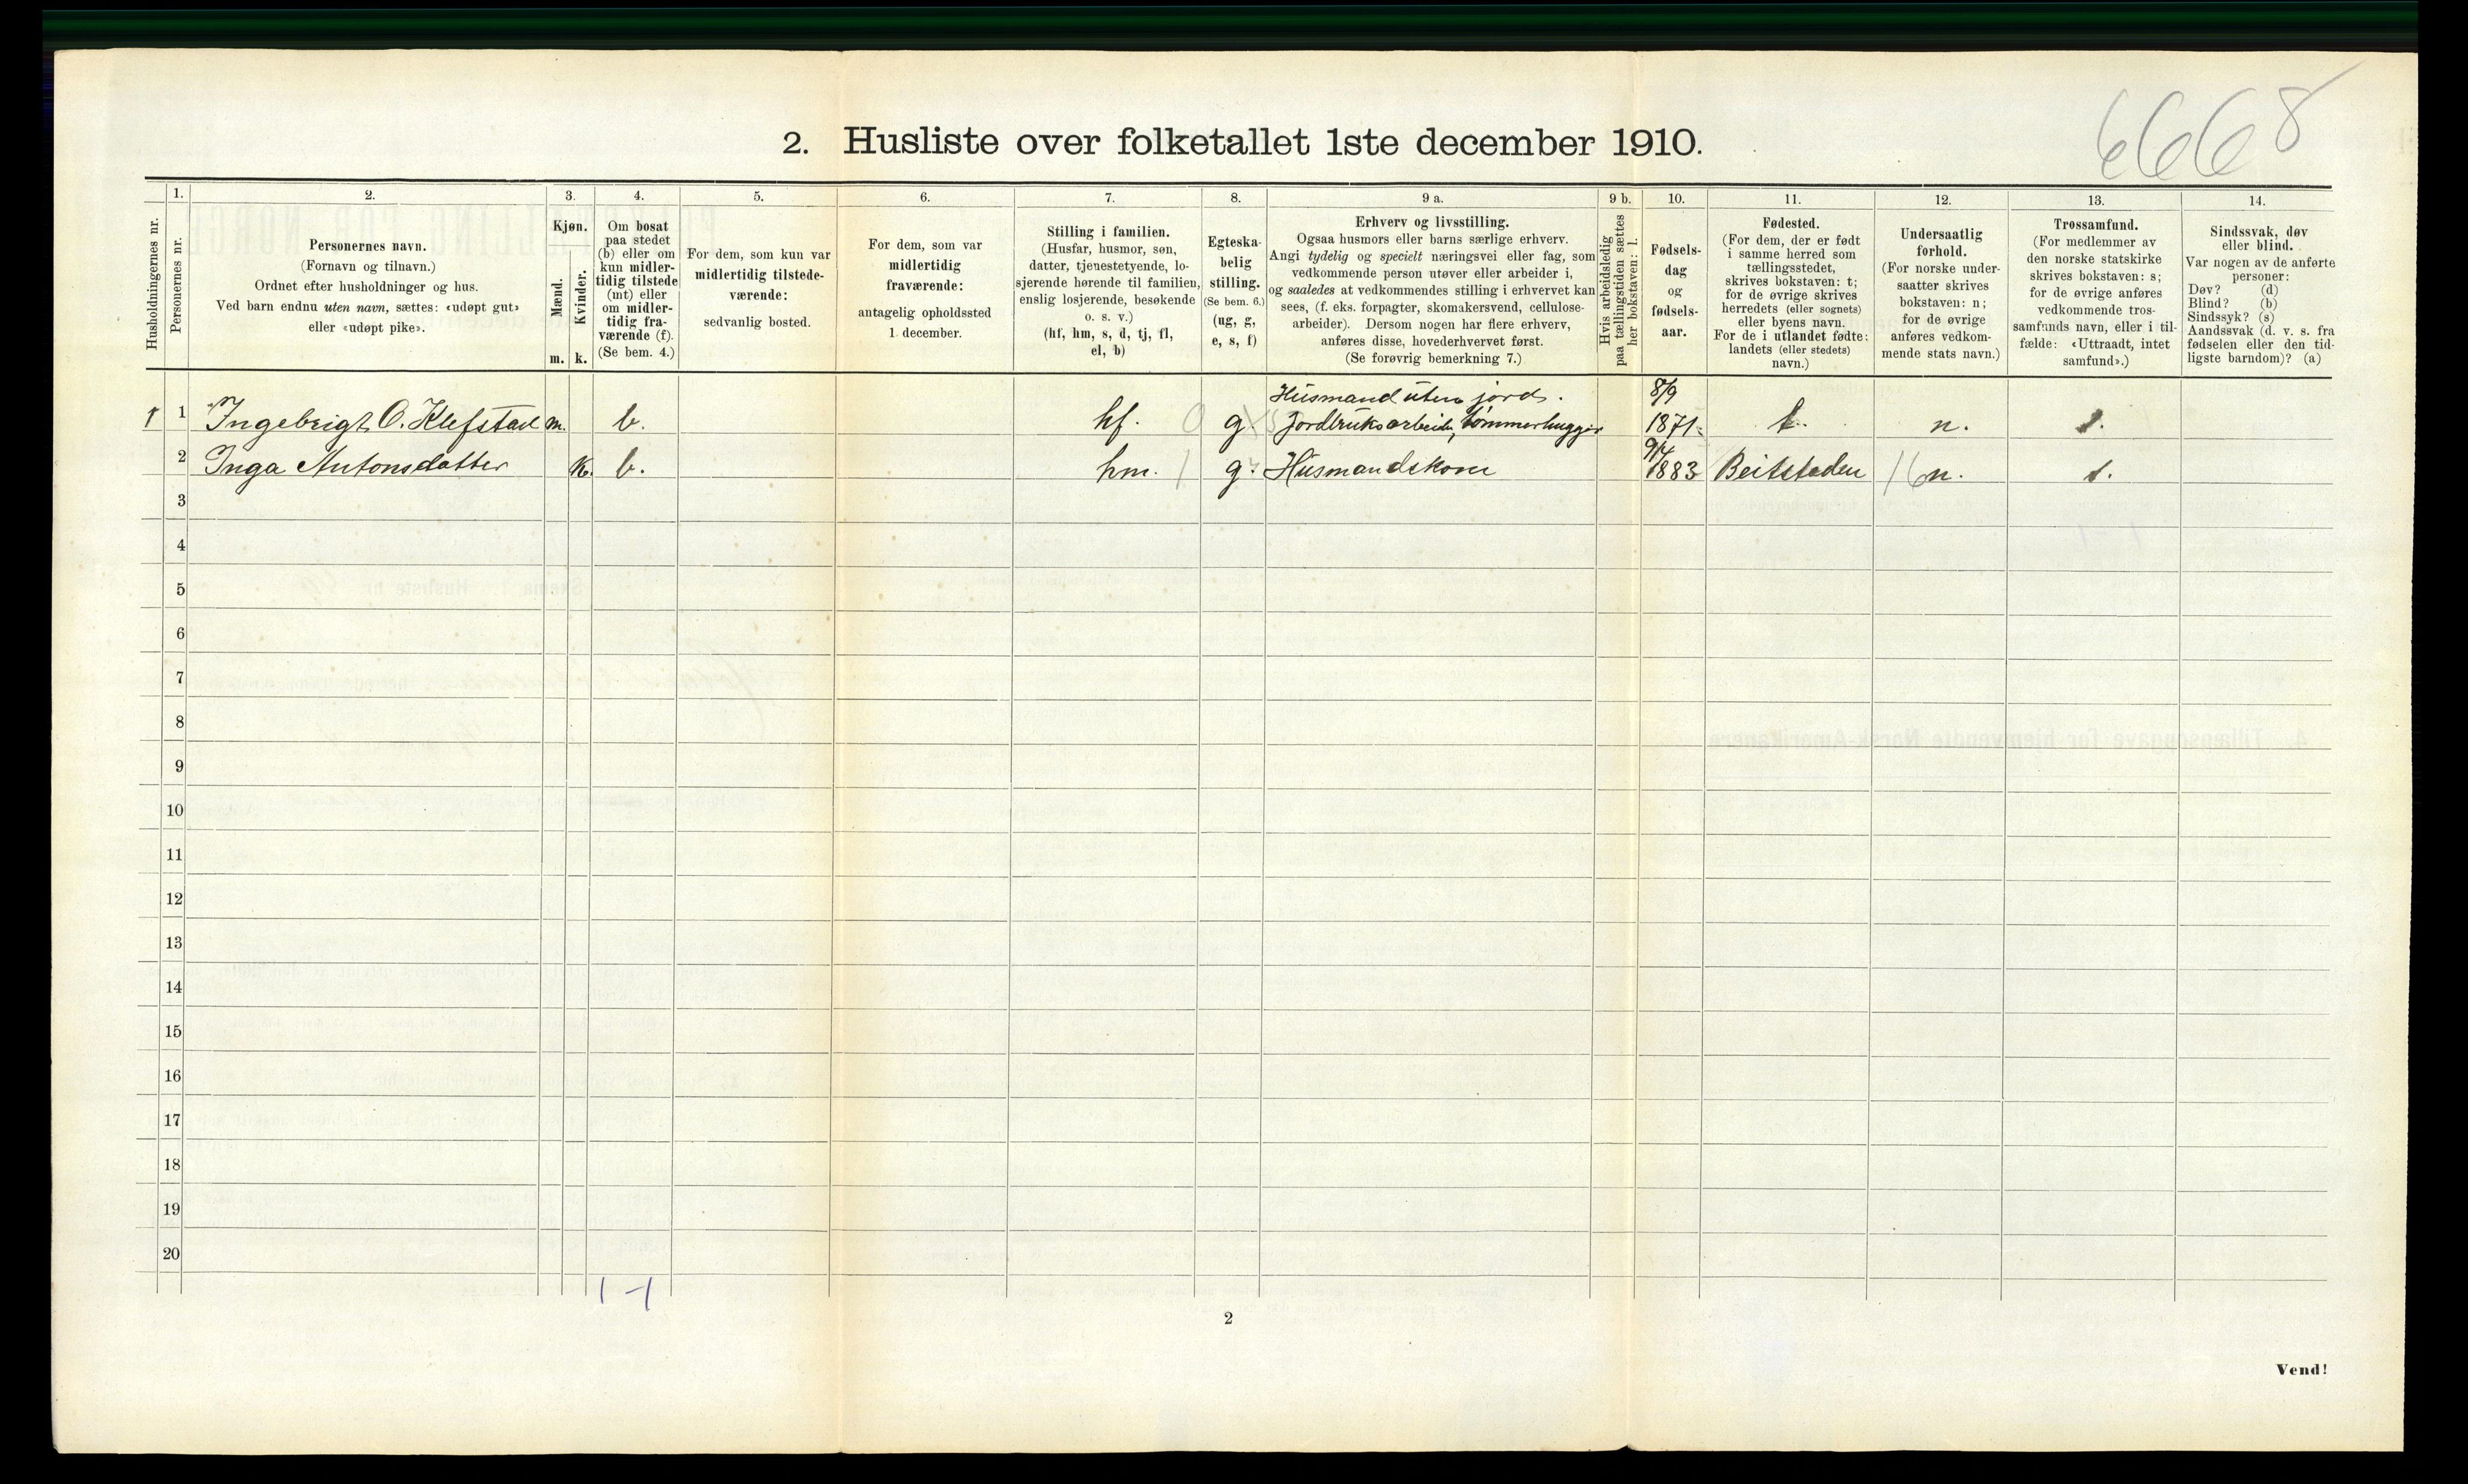 6668
2. Husliste over folketallet 1ste december 1910.
Husholdningernes nr.
1.
Personernes nr.
2.
Personernes navn.
(Fornavn og tilnavn.)
Ordnet efter husholdninger og hus.
Ved barn endnu uten navn, sættes: «udøpt gut»
eller «udøpt pike».
3.
Kjøn.
Mænd.
m.
Kvinder.
k.
4.
Om bosat
paa stedet
(b) eller om
kun midler-
tidig tilstede
(mt) eller
om midler-
tidig fra-
værende (f).
(Se bem. 4.)
5.
For dem, som kun var
midlertidig tilstede-
værende:
sedvanlig bosted.
6.
For dem, som var
midlertidig
fraværende:
antagelig opholdssted
1. december.
7.
Stilling i familien.
(Husfar, husmor, søn,
datter, tjenestetyende, lo-
sjerende hørende til familien,
enslig losjerende, besøkende
o. s. v.)
(hf, hm, s, d, tj, fl,
el, b)
8.
Egteska-
belig
stilling.
(Se bem. 6.)
(ug, g,
e, s, f)
9 a.
Erhverv og livsstilling.
Ogsaa husmors eller barns særlige erhverv.
Angi tydelig og specielt næringsvei eller fag, som
vedkommende person utøver eller arbeider i,
og saaledes at vedkommendes stilling i erhvervet kan
sees, (f. eks. forpagter, skomakersvend, cellulose-
arbeider). Dersom nogen har flere erhverv,
anføres disse, hovederhvervet først.
(Se forøvrig bemerkning 7.)
9 b.
Hvis arbeidsledig
paa tællingstiden sættes
her bokstaven: l.
10.
Fødsels-
dag
og
fødsels-
aar.
11.
Fødested.
(For dem, der er født
i samme herred som
tællingsstedet,
skrives bokstaven: t;
for de øvrige skrives
herredets (eller sognets)
eller byens navn.
For de i utlandet fødte:
landets (eller stedets)
navn.)
12.
Undersaatlig
forhold.
(For norske under-
saatter skrives
bokstaven: n;
for de øvrige
anføres vedkom-
mende stats navn.)
13.
Trossamfund.
(For medlemmer av
den norske statskirke
skrives bokstaven: s;
for de øvrige anføres
vedkommende tros-
samfunds navn, eller i til-
fælde: «Uttraadt, intet
samfund».)
14.
Sindssvak, døv
eller blind.
Var nogen av de anførte
personer:
Døv? (d)
Blind? (b)
Sindssyk? (s)
Aandssvak (d. v. s. fra
fødselen eller den tid-
ligste barndom)? (a)
Husmand uten jord. 8/9
1 1 Ingebrigt O. Klefstad m. b. hf. 0 g. Jordbruksarbeide, tømmerhugger 1871. t. n. s.
9/4
2 Inga Antonsdatter k. b. hm. 1 g. Husmandskone 1883 Beitstaden 16 n. s.
3
4
5
6
7
8
9
10
11
12
13
14
15
16
17
18
19
20
1 - 1
2
Vend!